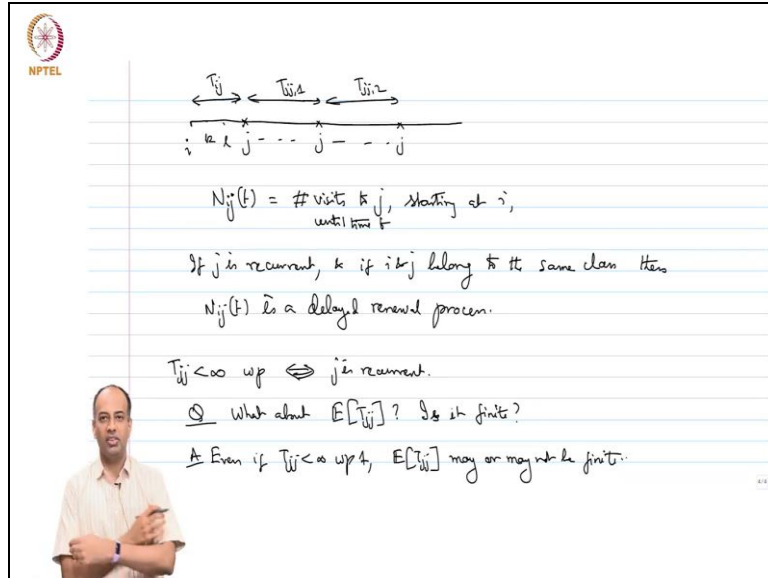 NPTEL
Tij Tjj,1 Tjj,2
i k l j - - - j - - - j
Nij(t) = # visits to j, starting at i,
until time t
If j is recurrent, & if i & j belong to the same class then
Nij(t) is a delayed renewal process.
Tjj < ∞ wp ⇔ j is recurrent.
Q What about E[Tjj]? Is it finite?
A Even if Tjj < ∞ wp 1, E[Tjj] may or may not be finite.